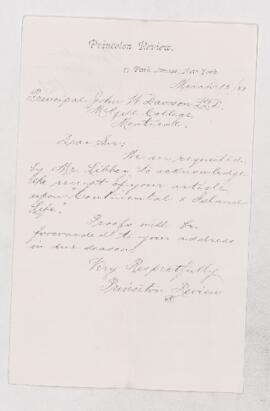 Princeton Review.
Park Avenue, New York.
March 12/81
Principal John W Dawson LLD.
McGill College,
Montreal.
Dear Sir:
We are requested
by Mr. Libbey to acknowledge
the receipt of your article
upon "Continental & Island
Life."
Proofs will be
forwarded to your address
in due season.
Very Respectfully
Princeton Review